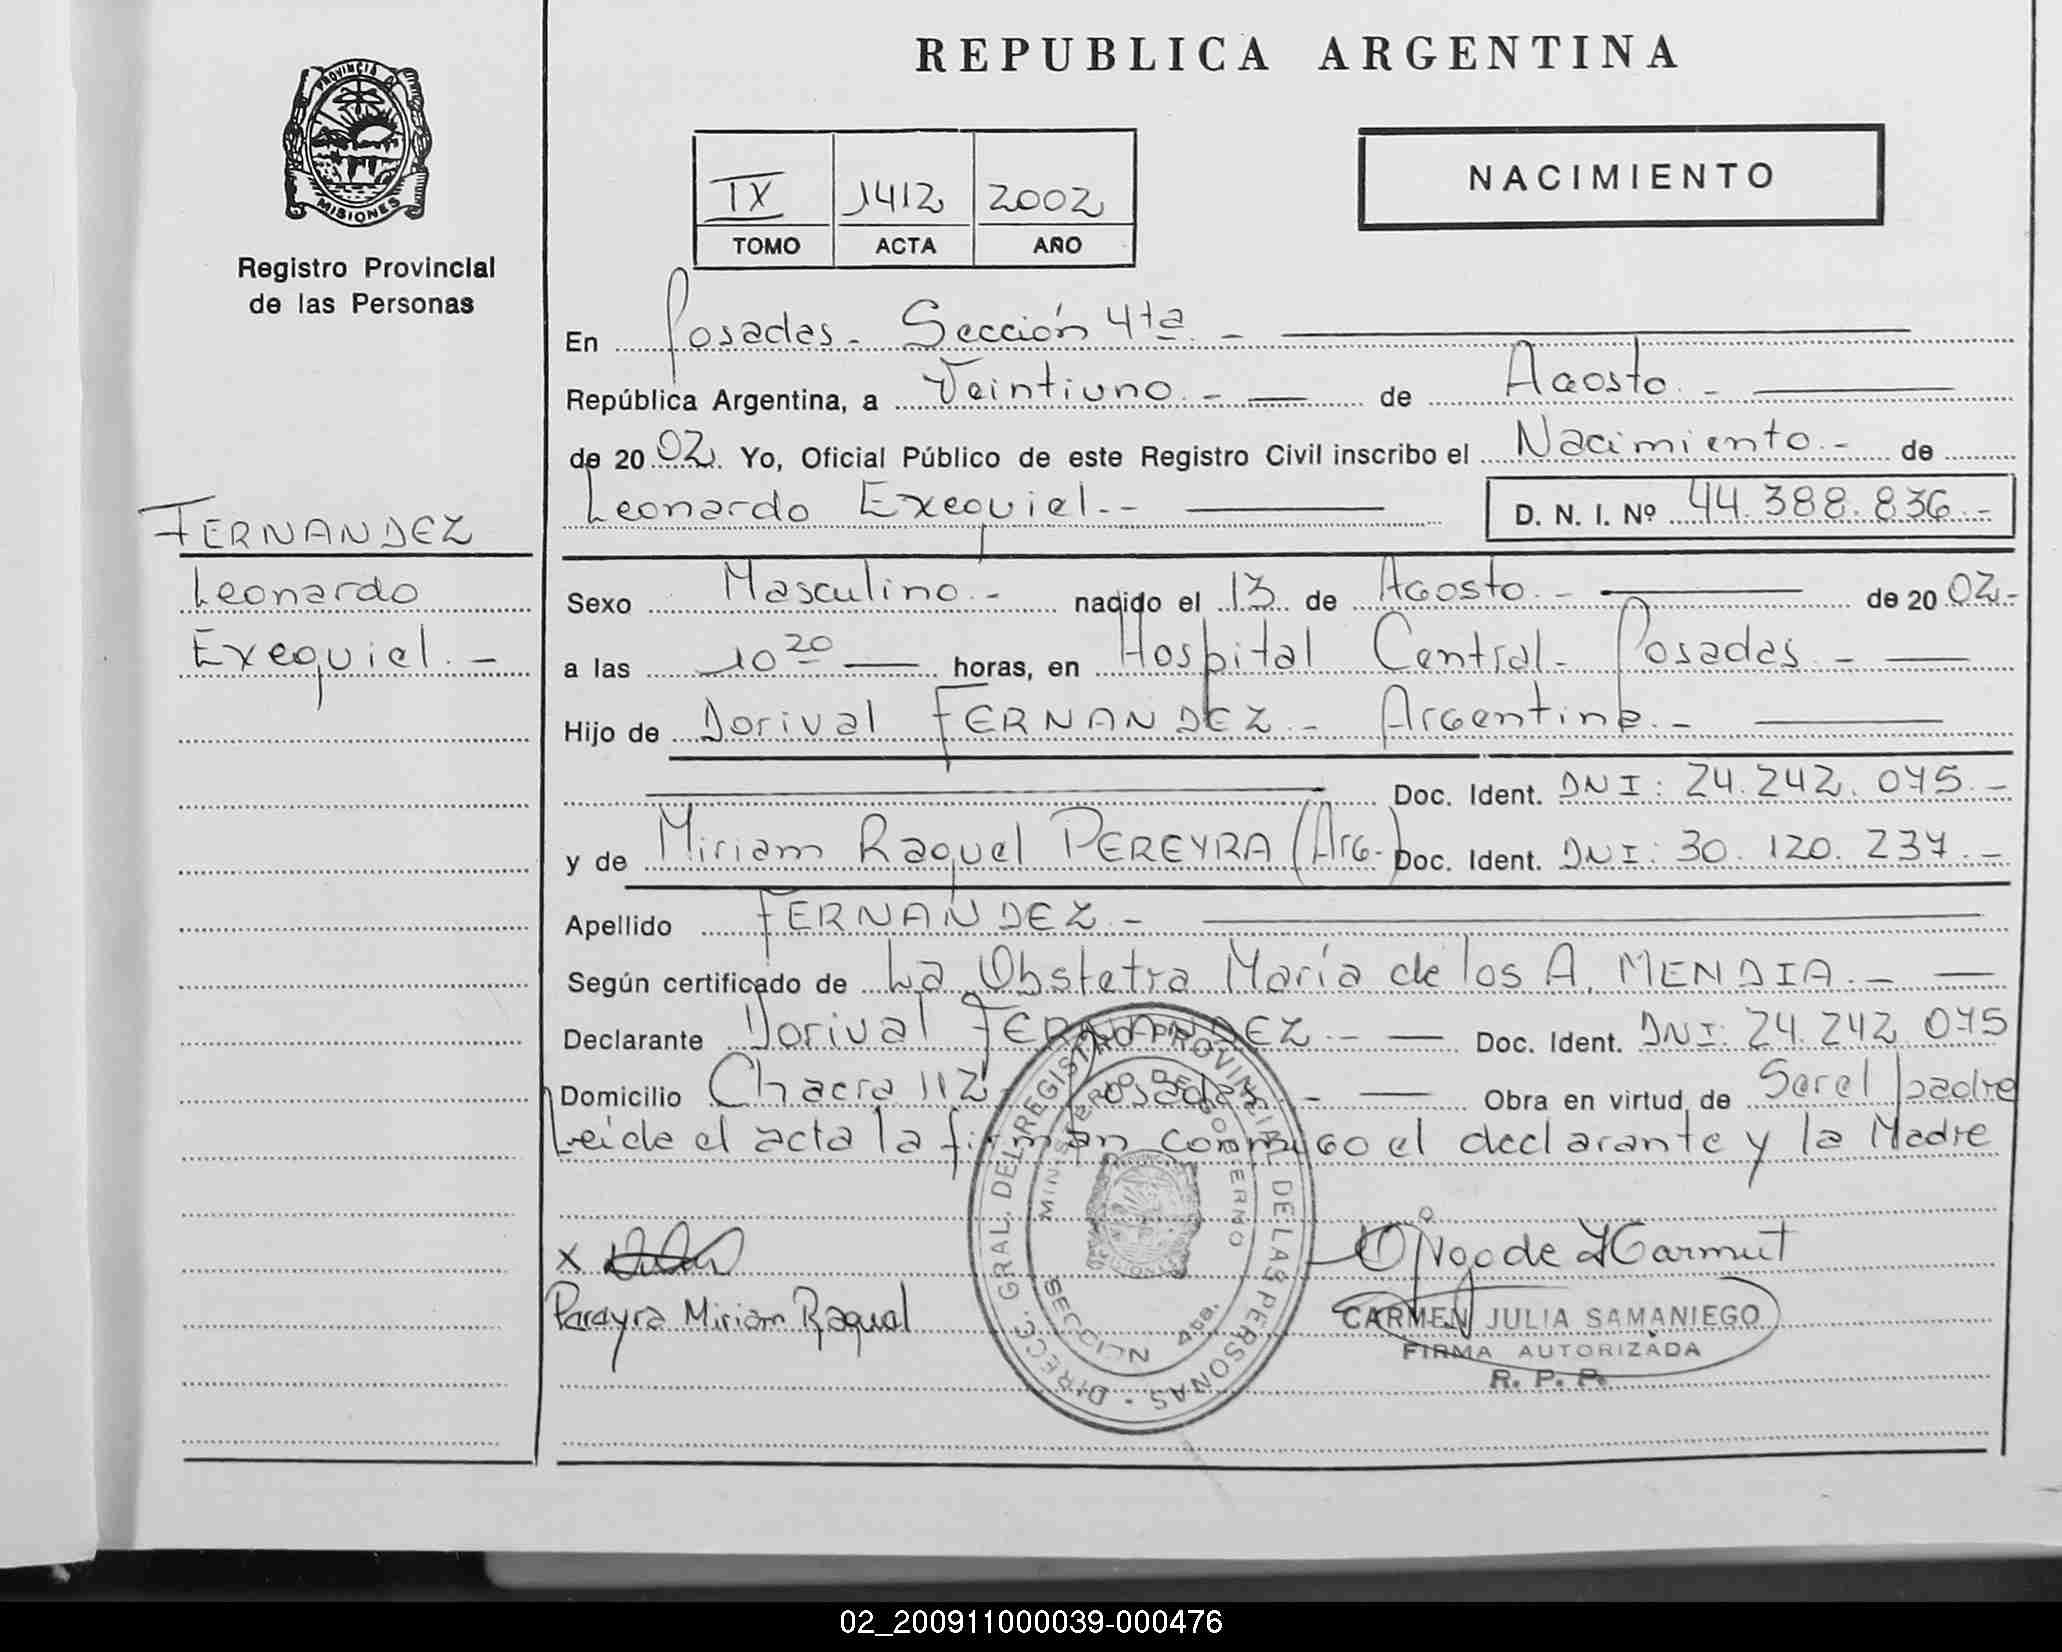 REPUBLICA ARGENTINA
PROVINCIA D
MISIONES
Registro Provincial
de las Personas
NACIMIENTO
IX 1412 2002
TOMO ACTA AÑO
En Posadas - Sección 4ta. -
República Argentina, a Veintiuno. - de Agosto. -
de 2002. Yo, Oficial Público de este Registro Civil inscribo el Nacimiento. - de
Leonardo Exequiel. - D. N. I. Nº 44.388.836. -
FERNANDEZ
Leonardo
Exequiel. -
Sexo Masculino. - nacido el 13 de Agosto. - de 2002.-
a las 10 20 horas, en Hospital Central - Posadas. -
Hijo de Dorival FERNANDEZ. - Argentina. -
Doc. Ident. DNI: 24.242.075. -
y de Miriam Raquel PEREYRA (Arg.) Doc. Ident. DNI: 30.120.237. -
Apellido FERNANDEZ. -
Según certificado de La Obstetra María de los A. MENDIA. -
Declarante Dorival FERNANDEZ. - Doc. Ident. DNI: 24.242.075
Domicilio Chacra 112 - Posadas. - Obra en virtud de Ser el padre
Leide el acta la firman conmigo el declarante y la Madre
DIREC. GRAL. DEL REGISTRO PROVINCIAL DE LAS PERSONAS
MINISTERIO DE GOBIERNO
SECCION 4ta.
X
Pereyra Miriam Raquel
CARMEN JULIA SAMANIEGO
FIRMA AUTORIZADA
R. P. P.
02_200911000039-000476